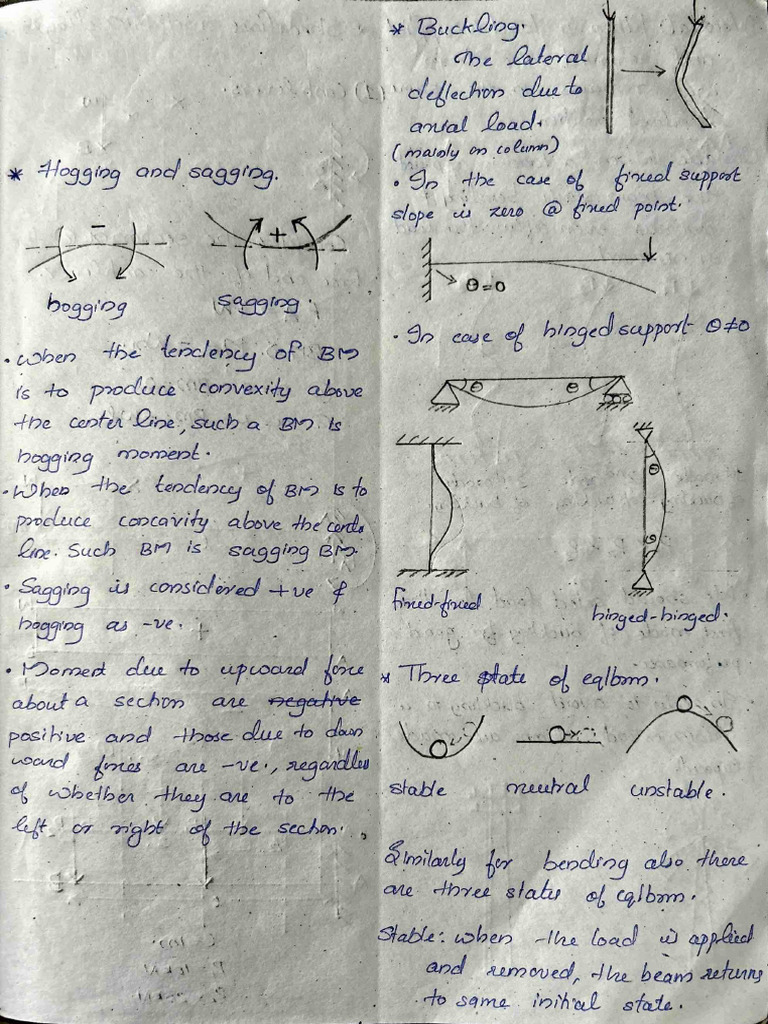 * Hogging and sagging.
−
+
hogging
sagging.
• When the tendency of BM
is to produce convexity above
the center line, such a BM is
hogging moment.
• When the tendency of BM is to
produce concavity above the
line. Such BM is sagging BM.
• Sagging is considered +ve &
hogging as -ve.
• Moment due to upward force
about a section are negative
positive and those due to down
ward forces are -ve, regardles
of whether they are to the
left or right of the section.
* Buckling.
The lateral
deflection due to
axial load.
(mainly on column)
• In the case of fixed support
slope is zero @ fixed point.
θ=0
• In case of hinged support θ≠0
θ
θ
θ
θ
fixed-fixed
hinged-hinged.
* Three state of eqlbm.
stable
neutral
unstable.
Similarly for bending also there
are three states of eqlbm.
Stable: when the load is applied
and removed, the beam returns
to same initial state.